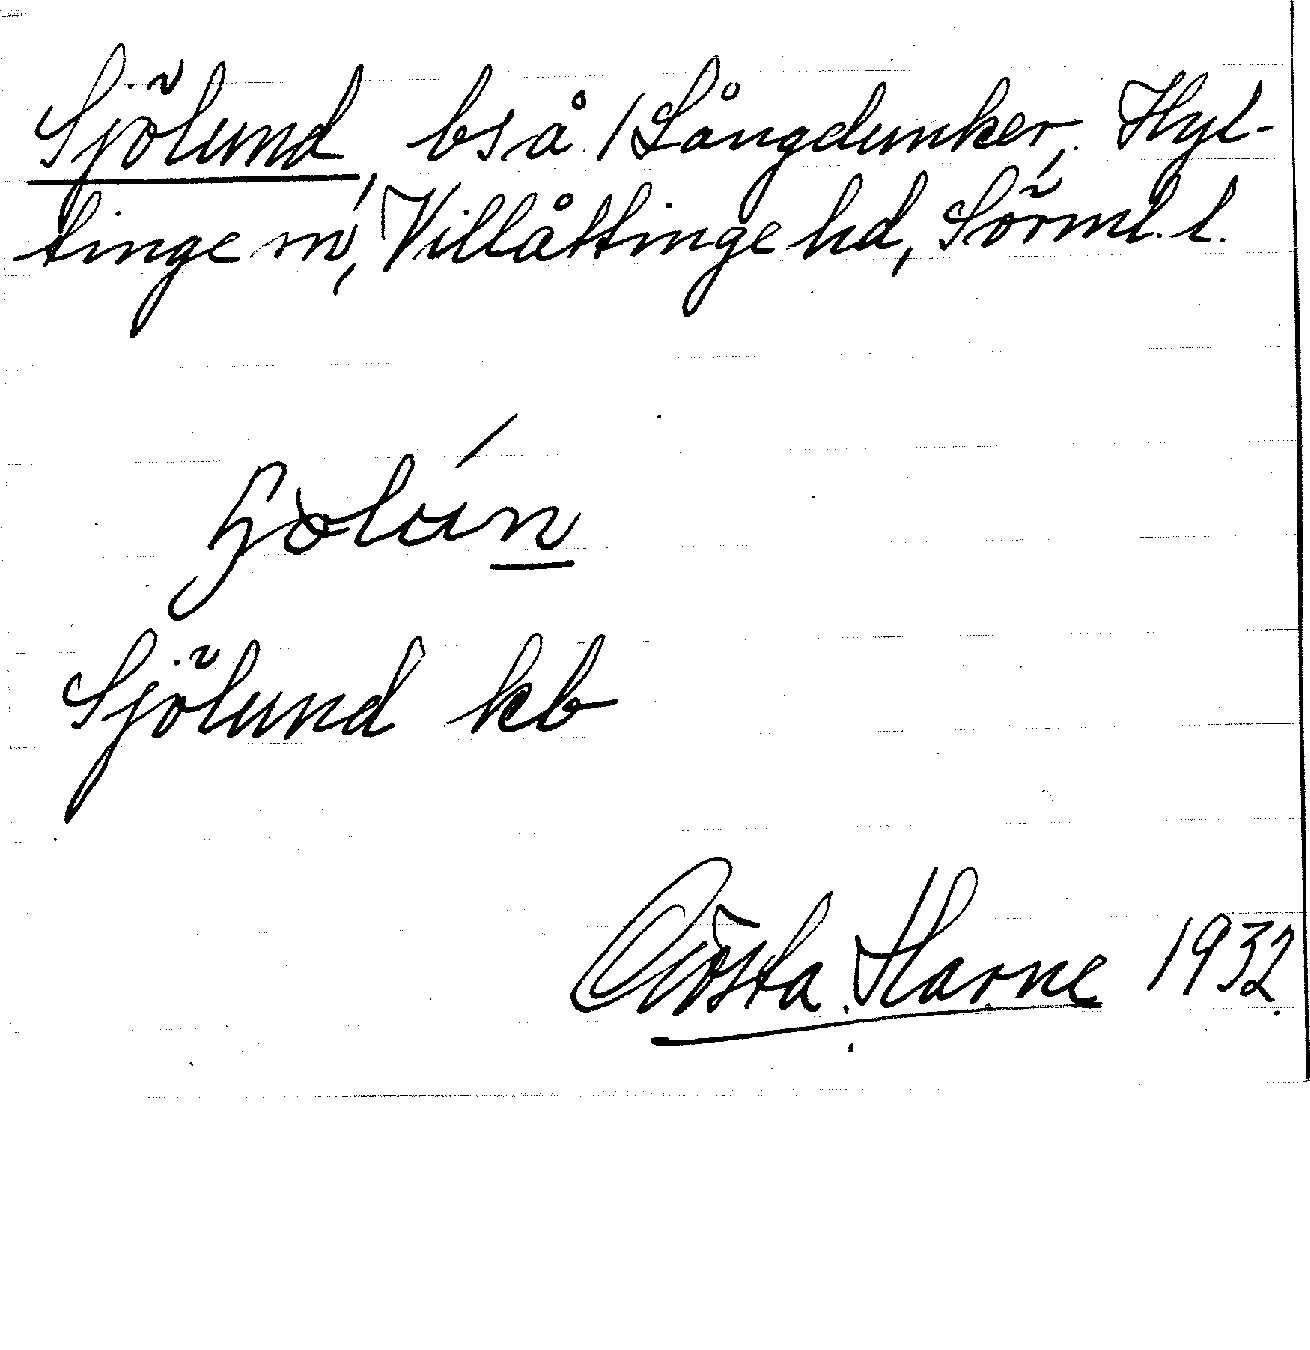 Sjölund, bs å 1 Långdunker, Hyl-
tinge sn, Villåttinge hd, Sörml. l.
Sjölund kb
Gösta Harne 1932